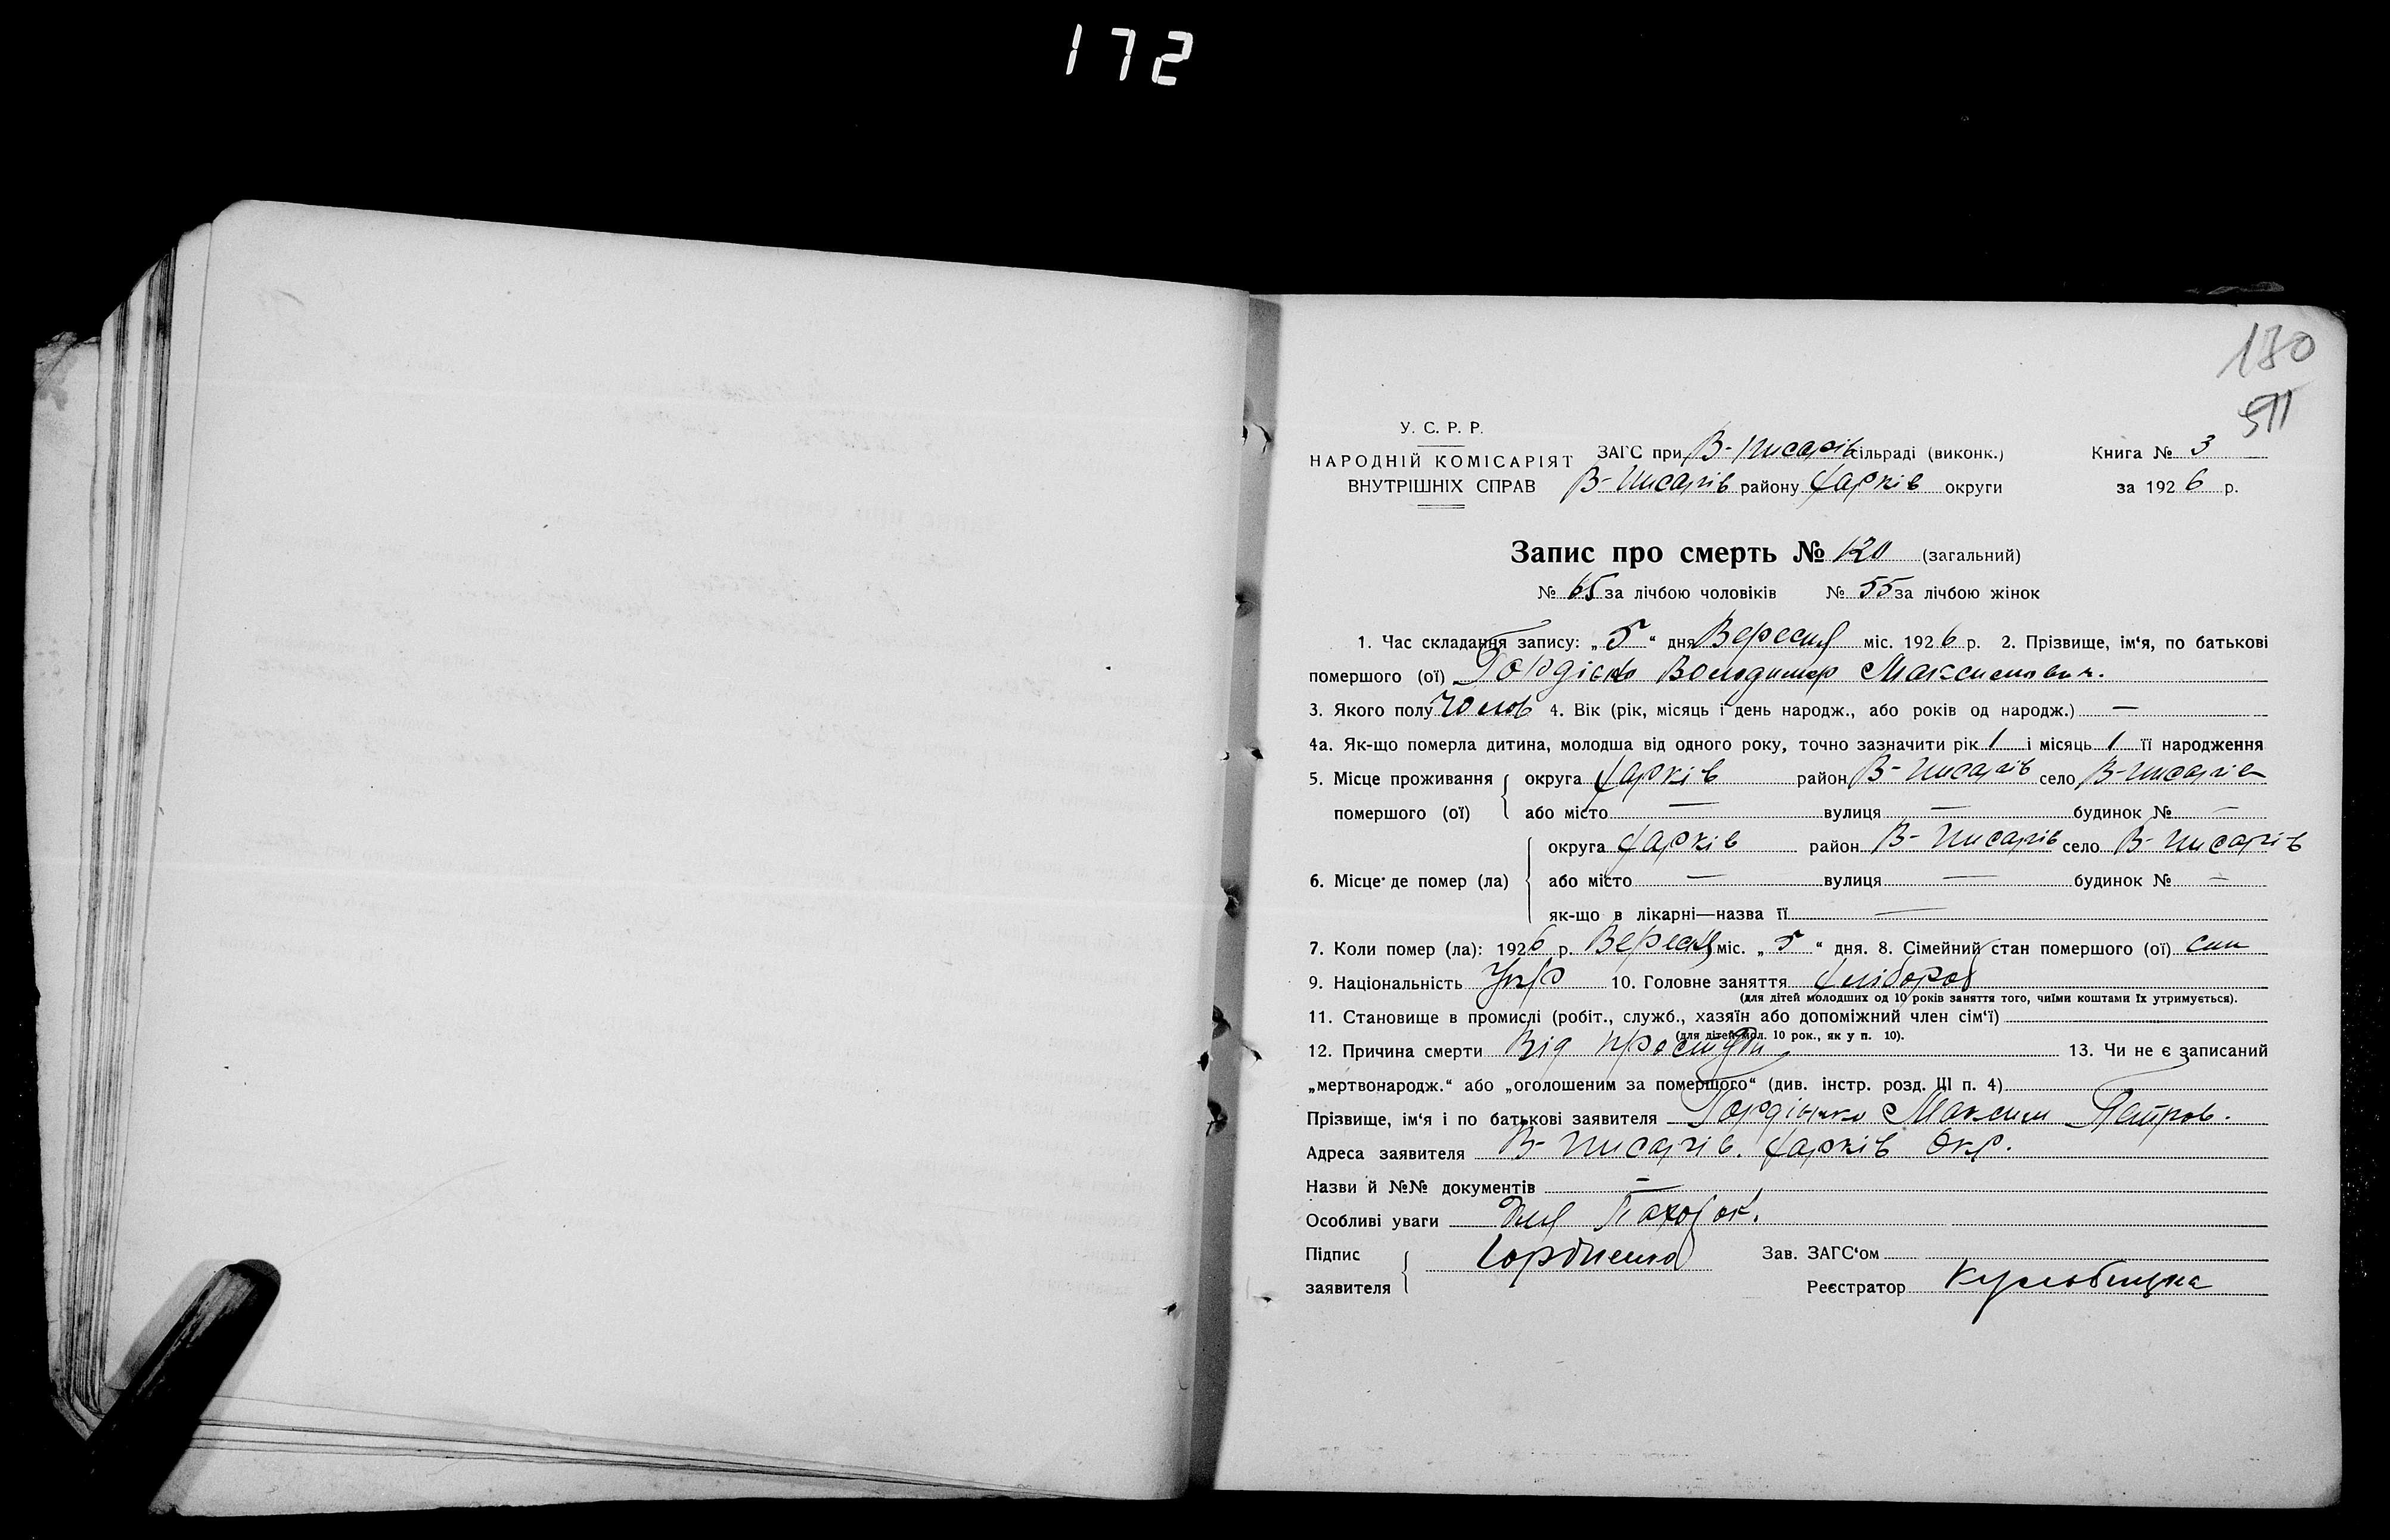 172
130
511
У. С. Р. Р.
НАРОДНІЙ КОМІСАРІЯТ
ВНУТРІШНІХ СПРАВ
ЗАГС при В-Писарів сільраді (виконк.) Книга № 3
В-Писарів району Харків округи за 1926 р.
Запис про смерть № 120 (загальний)
№ 65 за лічбою чоловіків № 55 за лічбою жінок
1. Час складання запису: „5“ дня Вересня міс. 1926 р. 2. Прізвище, ім‘я, по батькові
помершого (ої) Гордієнко Володимир Максимович.
3. Якого полу Чолов 4. Вік (рік, місяць і день народж., або років од народж.) —
4а. Як-що померла дитина, молодша від одного року, точно зазначити рік 1 і місяць 1 її народження
5. Місце проживання округа Харків район В-Писарів село В-Писарів
помершого (ої) або місто — вулиця — будинок № —
округа Харків район В-Писарів село В-Писарів
6. Місце де помер (ла) або місто — вулиця — будинок № —
як-що в лікарні—назва її —
7. Коли помер (ла): 1926 р. Вересня міс. „5“ дня. 8. Сімейний стан помершого (ої) син
9. Національність Укр 10. Головне заняття Хлібороб
(для дітей молодших од 10 років заняття того, чиїми коштами їх утримується).
11. Становище в промислі (робіт., служб., хазяїн або допоміжний член сім‘ї)
(для дітей мол. 10 рок., як у п. 10).
12. Причина смерти Від простуди 13. Чи не є записаний
„мертвонародж.“ або „оголошеним за помершого“ (див. інстр. розд. III п. 4)
Прізвище, ім‘я і по батькові заявителя Гордієнко Максим Петров.
Адреса заявителя В-Писарів. Харків Окр.
Назви й №№ документів —
Особливі уваги Для
Підпис
заявителя Гордиенко
Зав. ЗАГС‘ом
Реєстратор